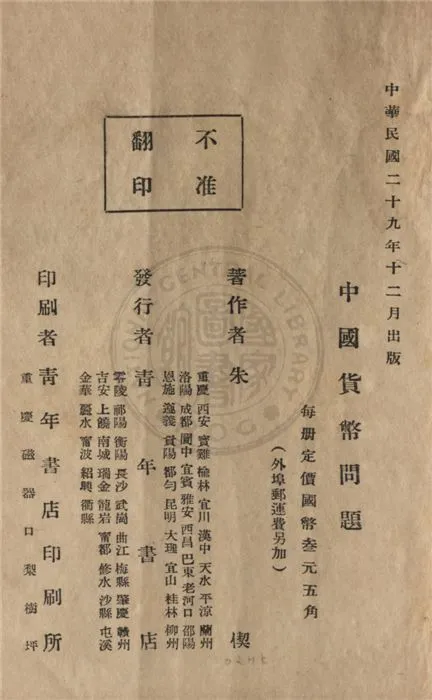 中華民國二十九年十二月出版
中國貨幣問題
每册定價國幣叁元五角
(外埠郵運費另加)
不准
翻印
著作者朱偰
發行者青年書店
重慶 西安 寶雞 榆林 宜川 漢中 天水 平涼 蘭州
洛陽 成都 閬中 宜賓 雅安 西昌 巴東 老河口 邵陽
恩施 遵義 貴陽 都勻 昆明 大理 宜山 桂林 柳州
零陵 祁陽 衡陽 長沙 武崗 曲江 梅縣 肇慶 贛州
吉安 上饒 南城 瑞金 龍岩 甯都 修水 沙縣 屯溪
金華 麗水 甯波 紹興 衢縣
印刷者青年書店印刷所
重慶磁器口梨樹坪
CENTRAL LIBRARY